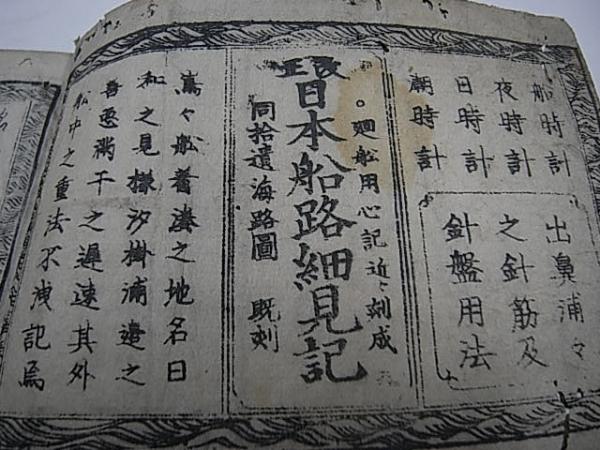 船時計
夜時計
日時計
潮時計
出鼻浦々
之針筋及
針盤用法
改正
日本船路細見記
○廻舩用心記近々刻成
同拾遺海路圖 既刻
萬々舩着湊之地名日
和之見樣汐掛浦邉之
善悪満干之遅速其外
舩中之重法不洩記焉